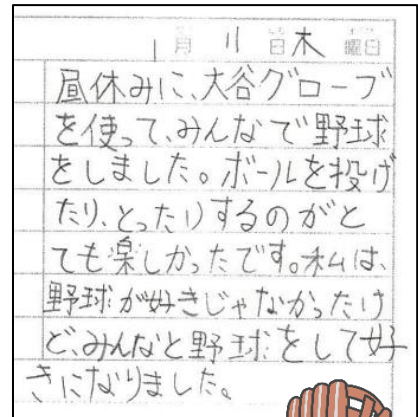 1月11日木曜日
昼休みに、大谷グローブ
を使って、みんなで野球
をしました。ボールを投げ
たり、とったりするのがと
ても楽しかったです。私は、
野球が好きじゃなかったけ
ど、みんなと野球をして好
きになりました。